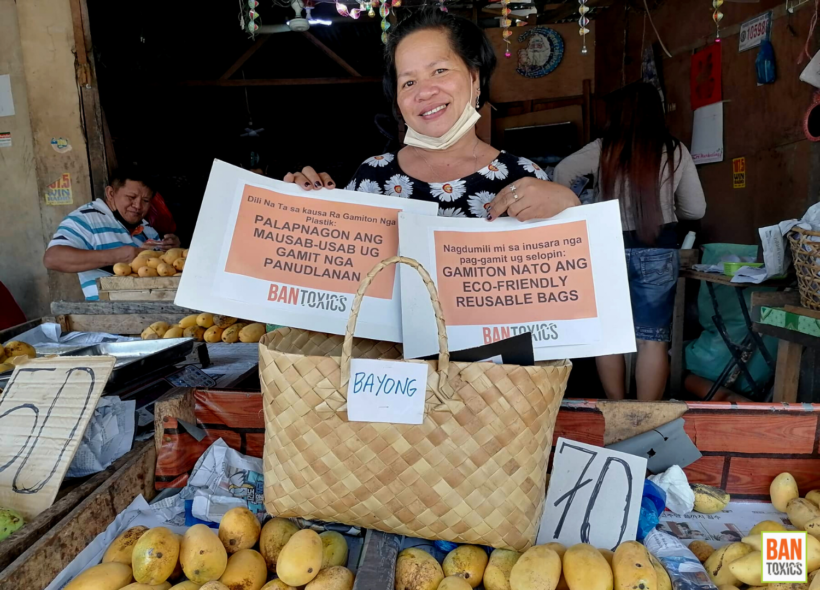 Dili Na Ta sa kausa Ra Gamiton Nga
Plastik:
PALAPNAGON ANG
MAUSAB-USAB UG
GAMIT NGA
PANUDLANAN
BANTOXICS
Nagdumili mi sa inusara nga
pag-gamit ug selopin:
GAMITON NATO ANG
ECO-FRIENDLY
REUSABLE BAGS
BANTOXICS
BAYONG
70
BAN
TOXICS